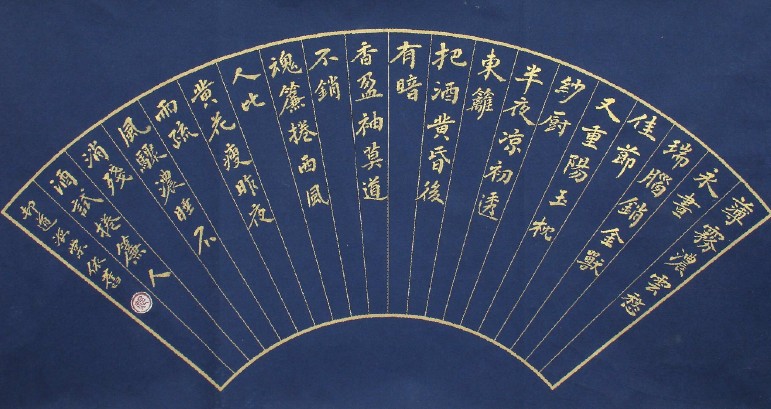 薄霧濃雲愁
永晝
瑞腦銷金獸
佳節
又重陽玉枕
紗厨
半夜涼初透
東籬
把酒黄昏後
有暗
香盈袖莫道
不銷
魂簾捲西風
人比
黄花瘦昨夜
雨疏
風驟濃睡不
消殘
酒試捲簾人
却道海棠依舊